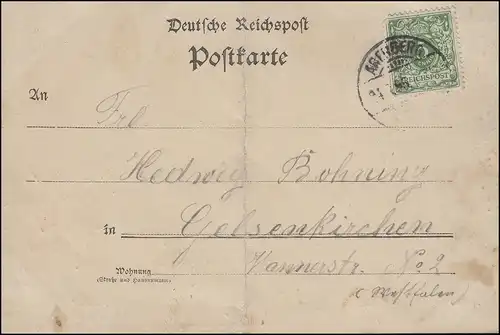 Deutsche Reichspost
Postkarte
REICHSPOST
An
Frl.
Hedwig Bohning
in Gelsenkirchen
Wohnung
(Straße und Hausnummer)
Hannerstr. No 2
(Westfalen)